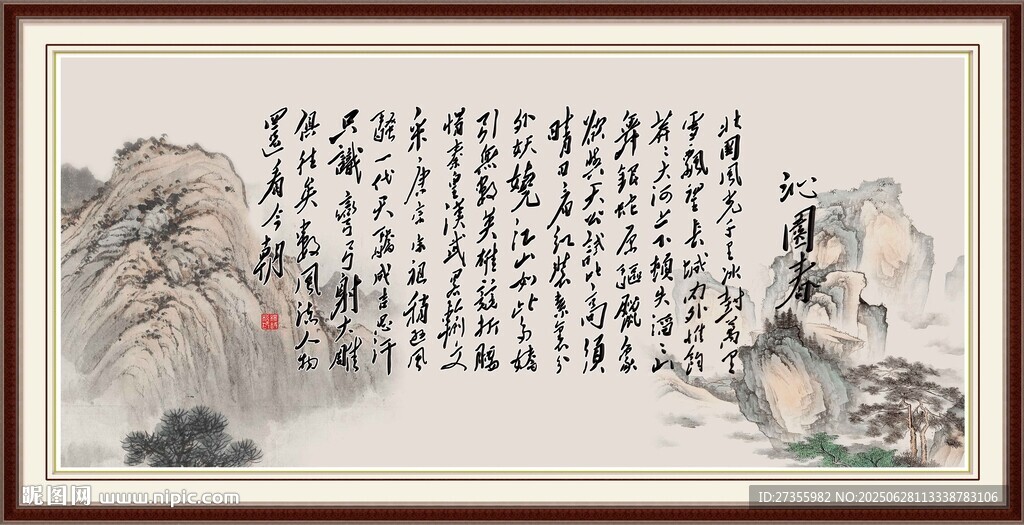 沁園春
北國風光千里冰封萬里
雪飄望長城内外惟餘
莽〻大河上下頓失滔〻山
舞銀蛇原馳臘象
欲與天公試比高須
晴日看紅裝素裹分
外妖嬈江山如此多嬌
引無數英雄競折腰
惜秦皇漢武略輸文
采唐宗宋祖稍遜風
騷一代天驕成吉思汗
只識彎弓射大雕
俱往矣數風流人物
還看今朝
昵图网 www.nipic.com
ID:27355982 NO:20250628113338783106